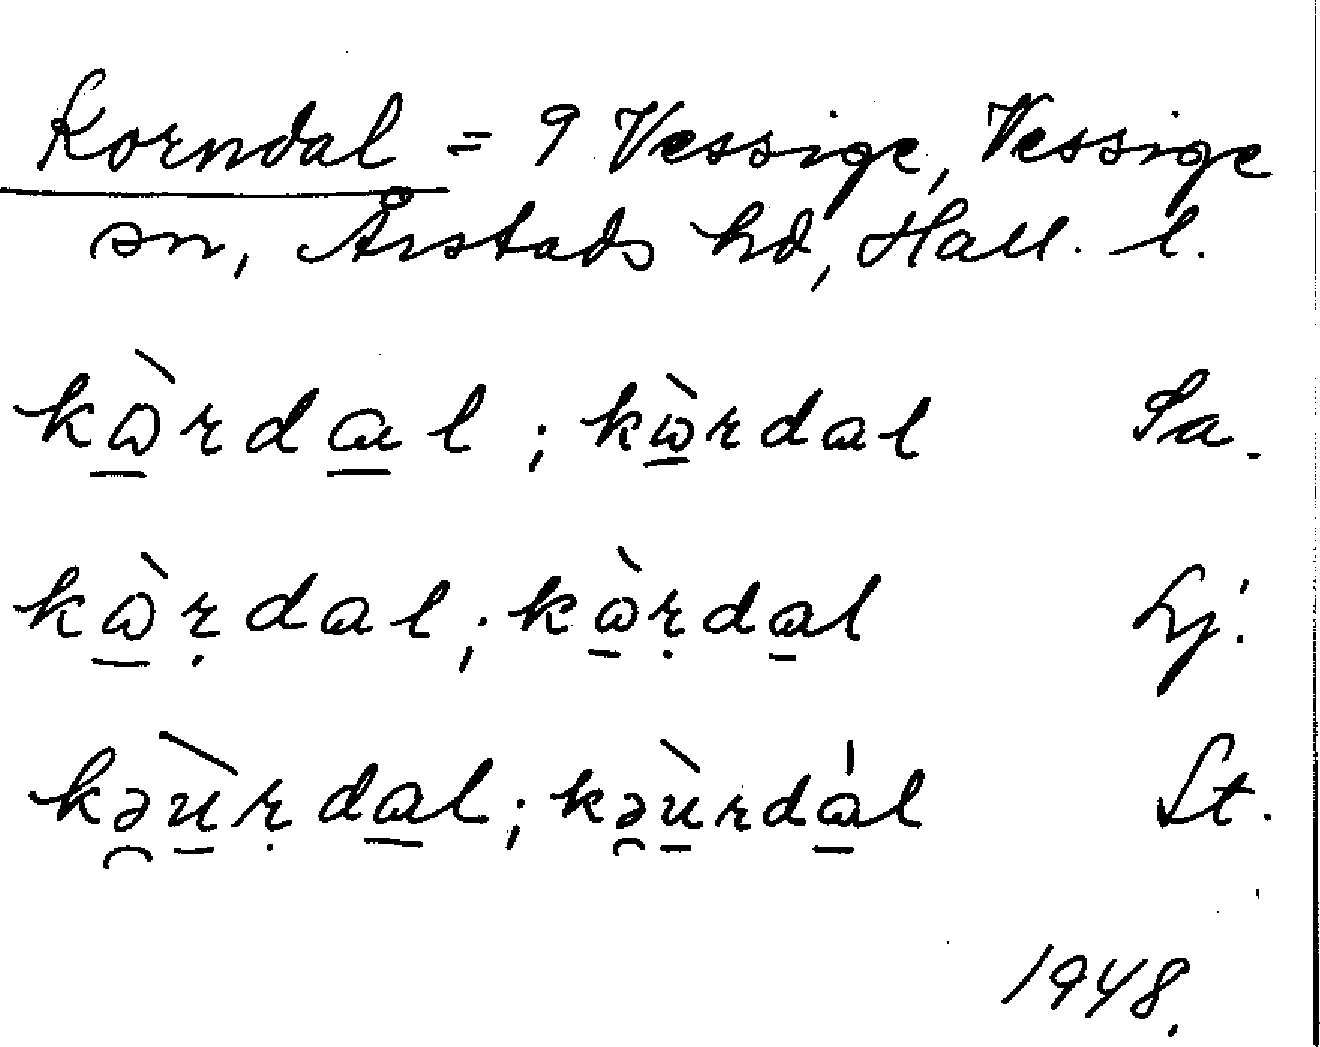 Korndal = 9 Vessige, Vessige
sn, Årstads hd, Hall. l.
kɷ̱̀rdɑ̱l ; kɷ̱̀rdɑl Sa.
kɷ̱̀ṛdɑl ; kɷ̱̀ṛdɑ̱l Lj.
kə̯ṵ̀ṛdɑ̱l ; kə̯ṵ̀rdɑ̱́l St.
1948.